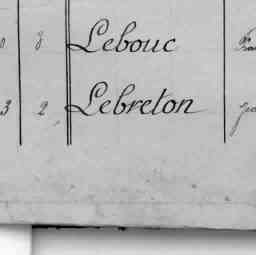 8 Lebouc
3 2 Lebreton